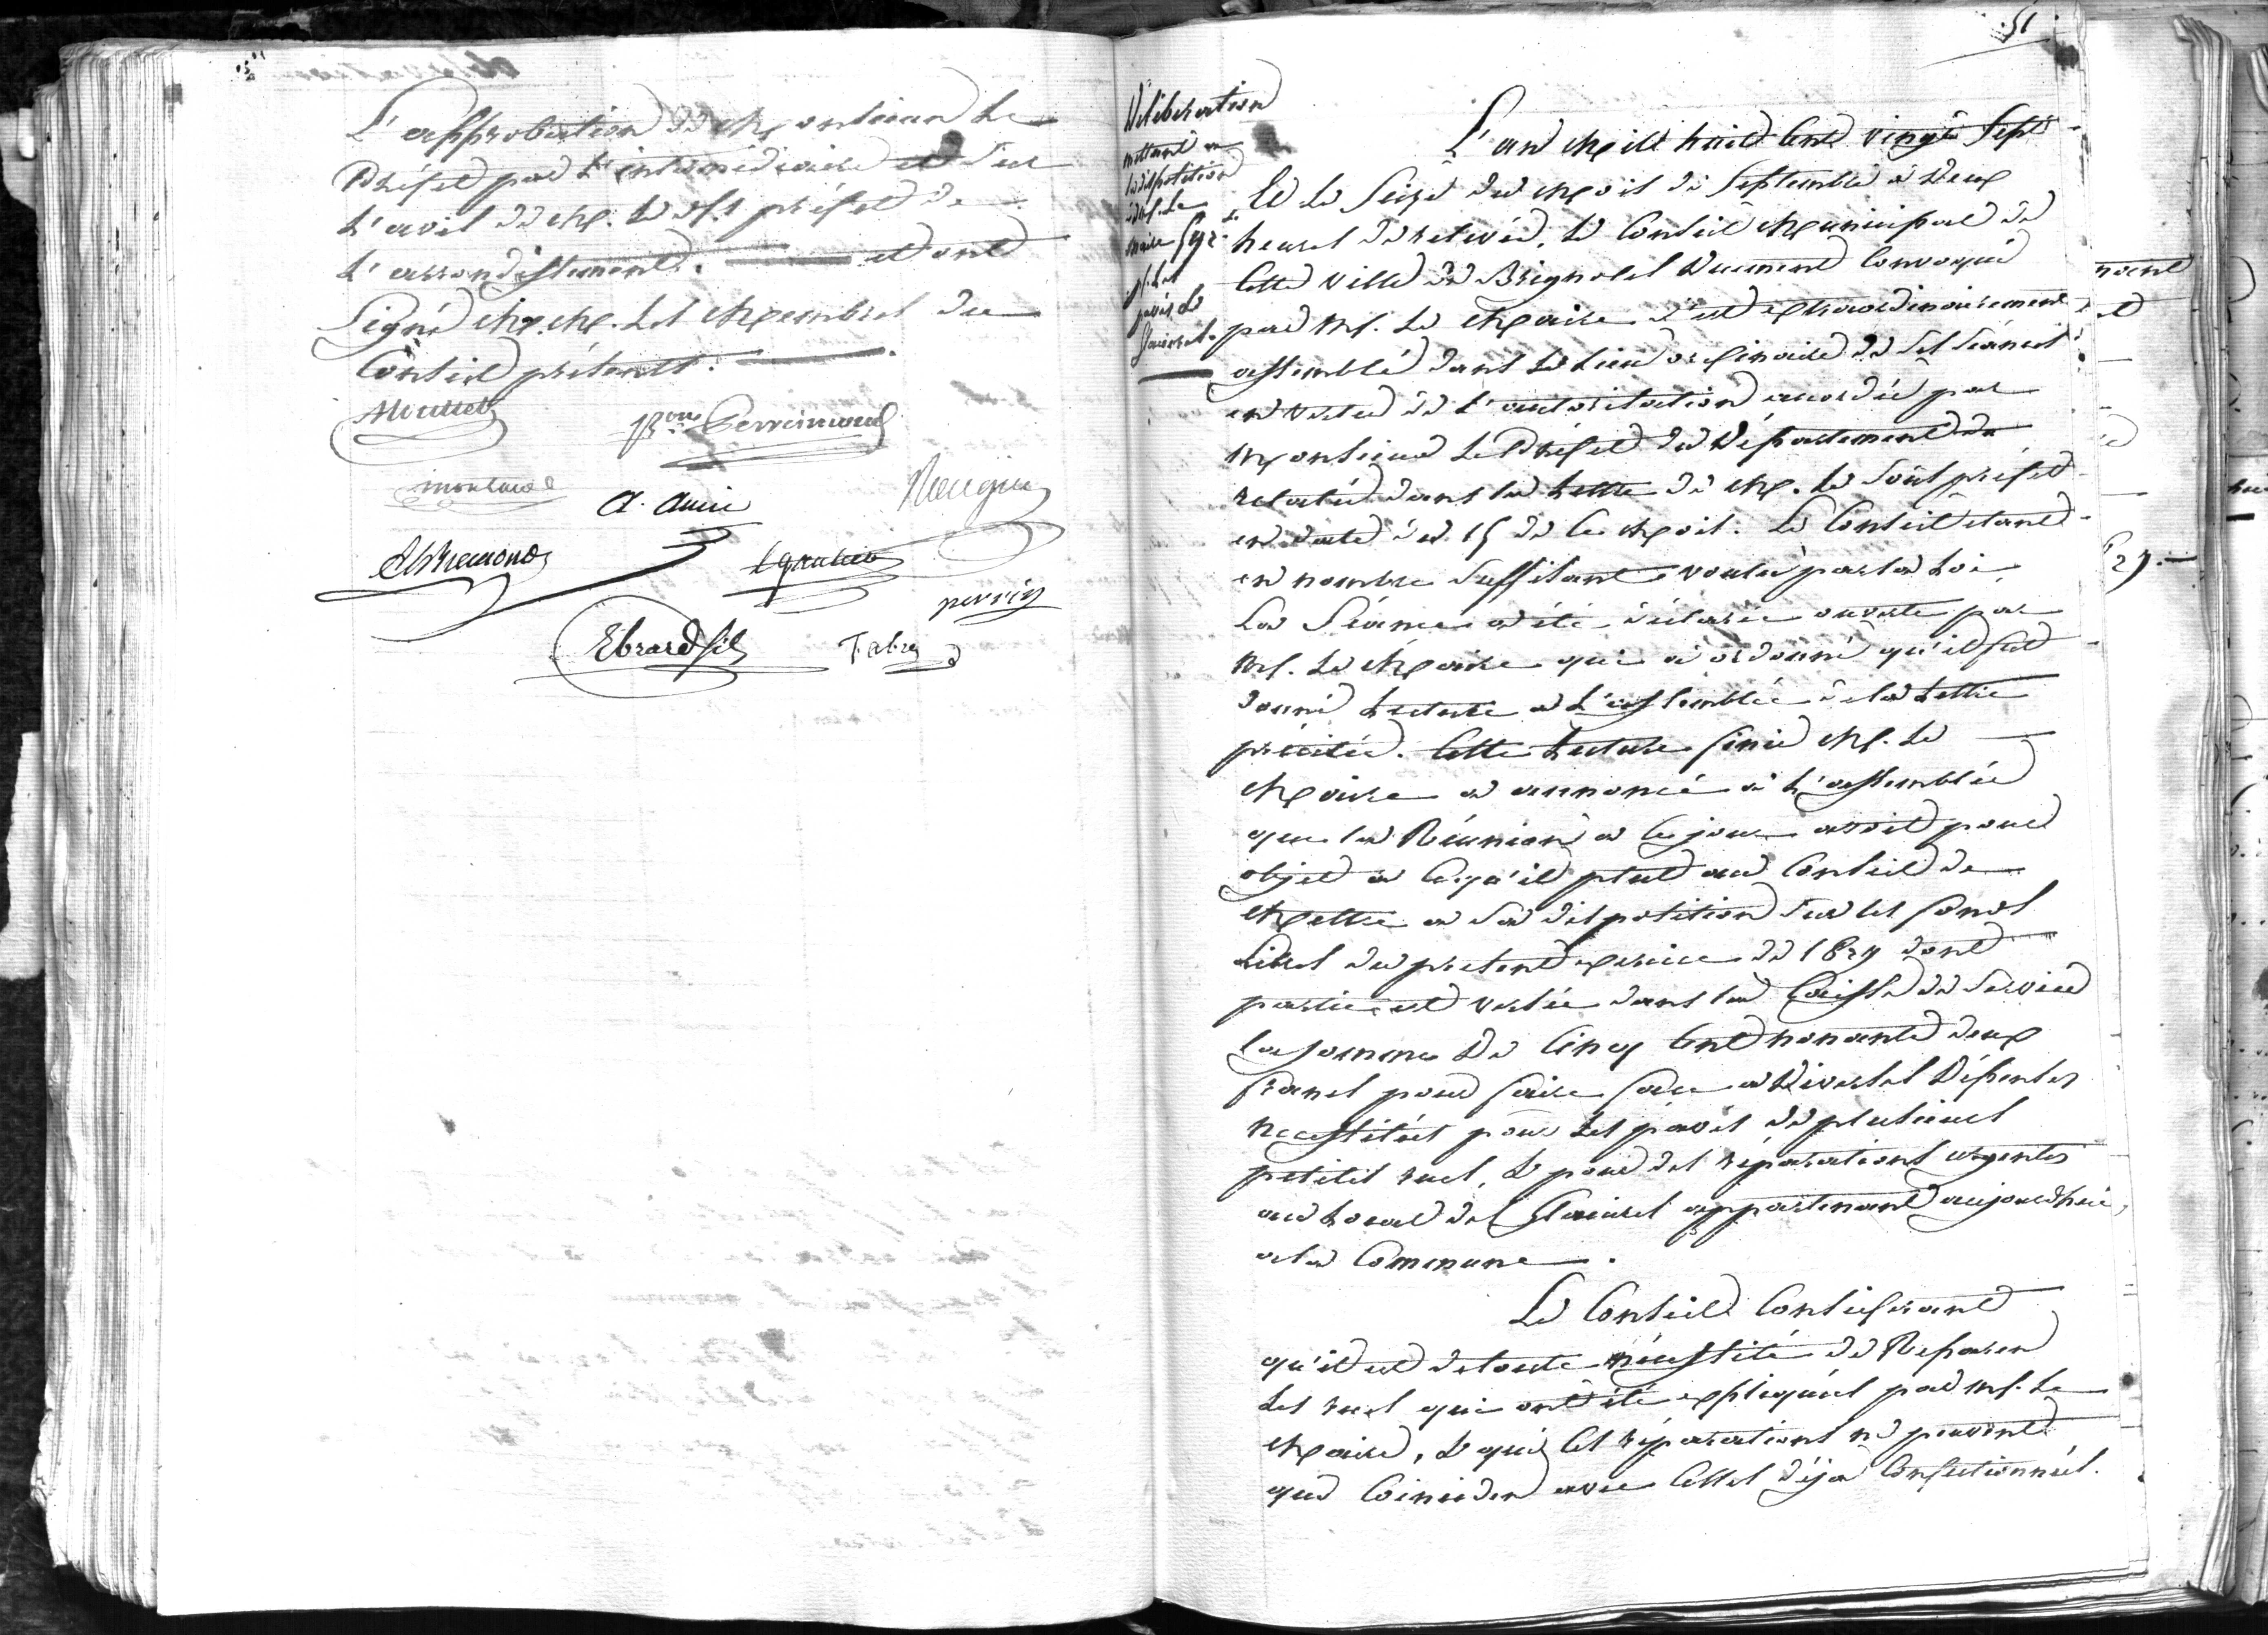 L'approbation de Monsieur le
Préfet par l'intermédiaire et sur
l'avis de M. le Sous préfet de
l'arrondissement. et ont
Signé M.M. les Membres du
Conseil présents.
Bon Perrimond
A. Amic
Ebrard fils
Fabre
perrin
51
Déliberation
mettant a
la disposition
de M. le
Maire 592 f.
p. les
pavés &
Clairistes.
L'an Mil huit Cent vingt Sept
et le Seize du Mois de Septembre à deux
heures de relevée, le Conseil Municipal de
Cette Ville de Brignoles duement Convoqué
par Mr. le Maire s'est extraordinairement
assemblé dans le lieu ordinaire de ses séances
en vertu de l'autorisation accordée par
Monsieur le Préfet du Département
relatée dans la lettre de M. le Sous préfet
en date du 15 de Ce Mois. Le Conseil étant
en nombre suffisant voulu par la Loi,
La Séance a été déclarée ouverte par
Mr. le Maire qui a ordonné qu'il fut
donné lecture a l'assemblée de la lettre
précitée. Cette lecture finie Mr. le
Maire a annoncé à l'assemblée
que la Réunion a Ce jour avoit pour
objet a Ce qu'il plut au Conseil de
Mettre a sa disposition sur les fonds
Libres du present exercice de 1827 dont
partie est versée dans la Caisse de Service
la somme De Cinq Cent nonante deux
francs pour faire face a Diverses Dépenses
necessitées pour les pavés de plusieurs
petites rues, & pour des réparations urgentes
au Local des appartenant aujourd'hui,
a la Commune.
Le Conseil Considerant
qu'il est de toute nécessité de Reparer
les rues qui ont été expliquées par Mr. le
Maire, & que Ces réparations ne peuvent
que Coincider avec Celles déja Confectionnées.